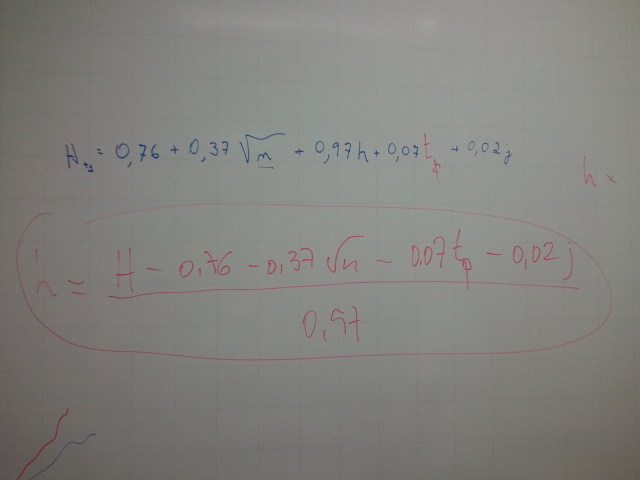 H = 0,76 + 0,37 √n + 0,97h + 0,07 tp + 0,02j
h =
h = H - 0,76 - 0,37 √n - 0,07 tp - 0,02 j
0,97